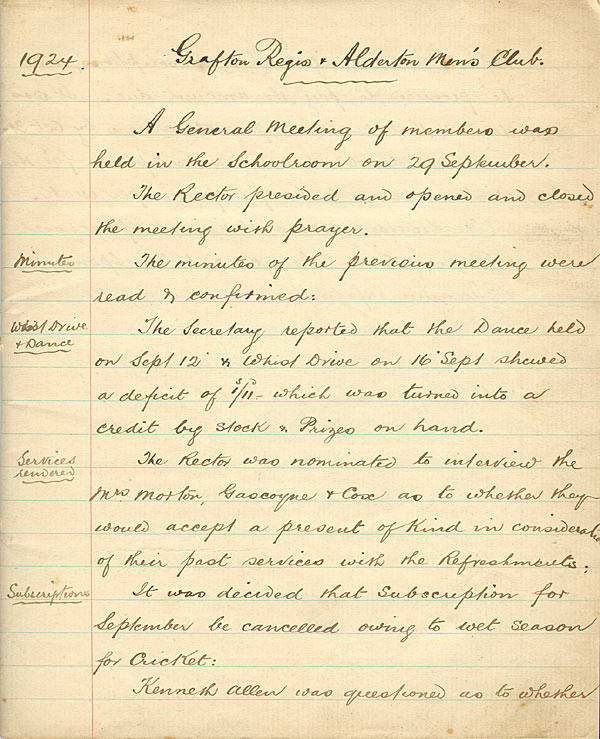 1924.
Grafton Regis & Alderton Men's Club.
A General Meeting of members was
held in the Schoolroom on 29 September.
The Rector presided and opened and closed
the meeting with prayer.
Minutes
The minutes of the previous meeting were
read & confirmed:
Whist Drive
& Dance
The Secretary reported that the Dance held
on Sept 12 & Whist Drive on 16 Sept shewed
a deficit of 1/11 - which was turned into a
credit by Stock & Prizes on hand.
Services
rendered
The Rector was nominated to interview the
Mrs Morton, Gascoyne & Cox as to whether they
would accept a present of Kind in consideratio
of their past services with the Refreshments.
Subscriptions
It was decided that Subscription for
September be cancelled owing to wet season
for Cricket:
Kenneth Allen was questioned as to whether